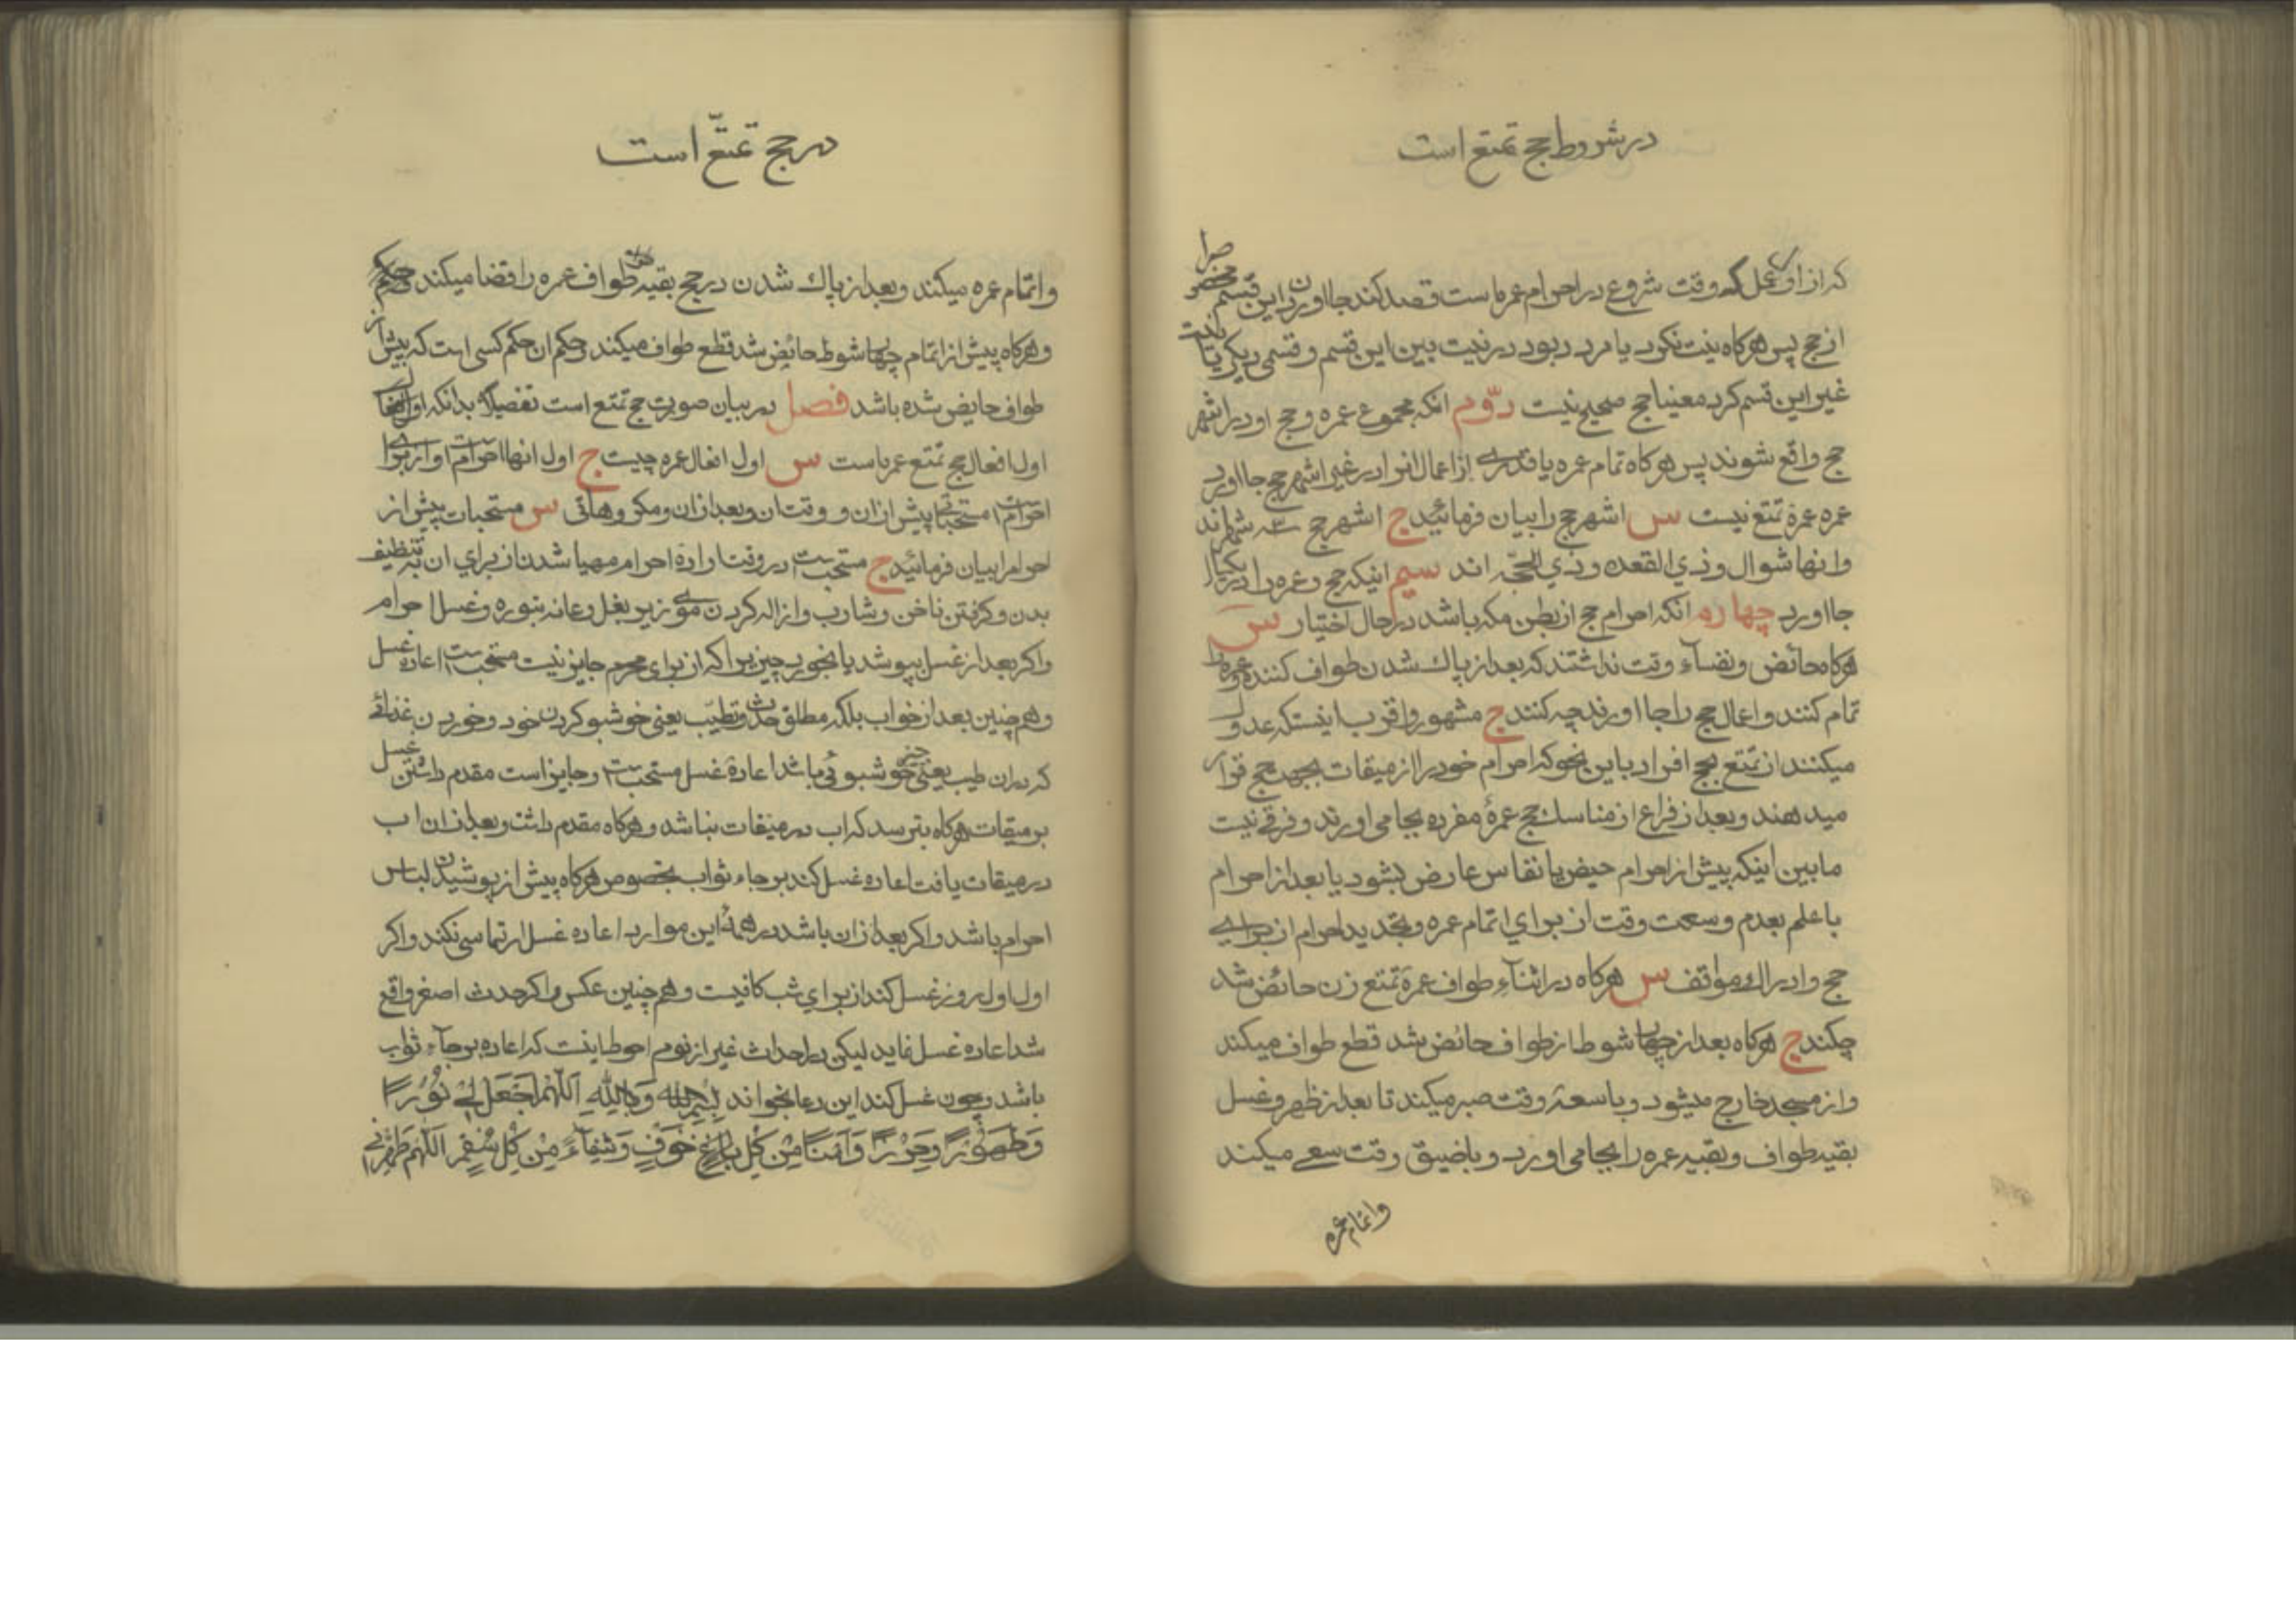 در شروط حج تمتع است
که از اول عمل که وقت شروع در احرام عمره است قصد کند جا اوردن این قسم مخصوصرا
از حج پس هرکاه نیت نکرد یا مردد بود در نیت بین این قسم و قسمی دیکر یا نیت
غیر این قسم کرد معینا حج صحیح نیست دوّم انکه مجموع عمره و حج او در اشهر
حج واقع شوند پس هرکاه تمام عمره یا قدری از اعمال انرا در غیر اشهر حج جا اورد
عمره عمرهٔ تمتع نیست س اشهر حج را بیان فرمائید ج اشهر حج سه شهراند
وانها شوال و ذی القعده و ذی الحجّه اند سیم اینکه حج و عمره را در یکسال
جا اورد چهارم انکه احرام حج از بطن مکه باشد در حال اختیار س
هرکاه حائض و نفسآء وقت نداشتند که بعد از پاك شدن طواف کنند و عمره را
تمام کنند و اعمال حج را جا اورند چه کنند ج مشهور و اقرب اینستکه عدول
میکنند از تمتع بحج افراد باین نحو که احرام خود را از میقات بجهة حج قرار
میدهند و بعد از فراغ از مناسك حج عمرهٔ مفرده بجا می اورند و فرقی نیست
مابین اینکه پیش از احرام حیض یا نفاس عارض بشود یا بعد از احرام
با علم بعدم وسعت وقت از برای اتمام عمره و تجدید احرام از برای
حج و ادراك مواقف س هرکاه در اثنآء طواف عمرهٔ تمتع زن حائض شد
چکند ج هرکاه بعد از چهار شوط از طواف حائض شد قطع طواف میکند
و از مسجد خارج میشود و با سعهٔ وقت صبر میکند تا بعد از طهر و غسل
بقیه طواف و بقیه عمره را بجا می اورد و با ضیق وقت سعی میکند
واتمام عمره
در حج تمتّع است
واتمام عمره میکند و بعد از پاك شدن در حج بقیه طواف عمره را قضا میکند
و هرکاه پیش از اتمام چهار شوط حائض شد قطع طواف میکند و حکم ان حکم کسی است که پیش از
طواف حایض شده باشد فصل در بیان صورت حج تمتع است تفصیلا بدانکه
اول افعال حج تمتع عمره است س اول افعال عمره چیست ج اول انها احرام است و از برای
احرام است مستحباتی پیش از ان و وقت ان و بعد از ان و مکروهاتی س مستحبات پیش از
احرام را بیان فرمائید ج مستحب است در وقت ارادهٔ احرام مهیا شدن از برای ان به تنظیف
بدن و کرفتن ناخن و شارب و ازاله کردن موی زیر بغل و عانه بنوره و غسل احرام
و اکر بعد از غسل بپوشد یا بخورد چیزیرا که از برای محرم جایز نیست مستحب است اعاده غسل
و هم چنین بعد از خواب بلکه مطلق حدث و تطیّب یعنی خوشبو کردن خود و خوردن غذائی
که در ان طیب یعنی چیز خوشبوئی باشد اعادهٔ غسل مستحب است و جایز است مقدم داشتن غسل
بر میقات هرکاه بترسد که اب در میقات نباشد و هرکاه مقدم داشت و بعد از ان اب
در میقات یافت اعاده غسل کند برجاء ثواب بخصوص هرکاه پیش از پوشیدن لباس
احرام باشد و اکر بعد از ان باشد در همهٔ این موارد اعاده غسل ارتماسی نکند و اکر
اول اول روز غسل کند از برای شب کافیست و هم چنین عکس و اکر حدث اصغر واقع
شد اعاده غسل نماید لیکن در احداث غیر از نوم احوط اینست که اعاده برجآء ثواب
باشد و چون غسل کند این دعا بخواند بِسْمِ اللهِ وَبِاللهِ اَللّهُمَّ اجْعَلْهُ لی نُورًا
وَطَهُورًا وَحِرْزًا وَاَمْنًا مِنْ کُلِّ خَوْفٍ وَشِفآءً مِنْ کُلِّ سُقْمٍ اَللّهُمَّ طَهِّرْنی